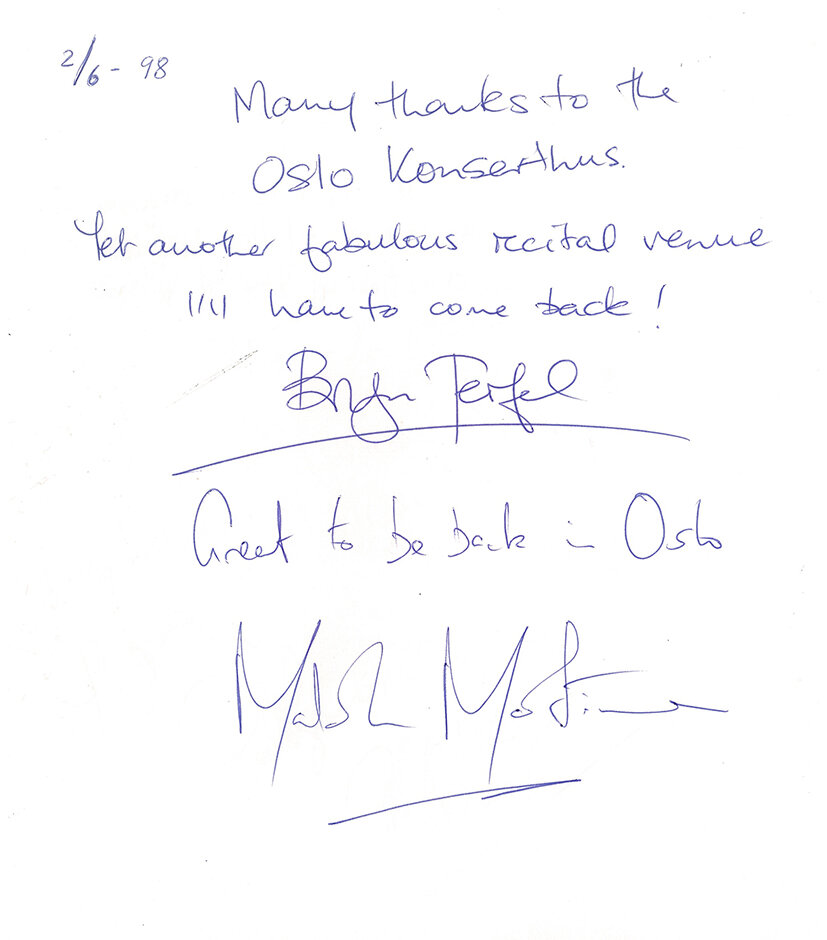 2/6 - 98
Many thanks to the
Oslo Konserthus.
Yet another fabulous recital venue
I'll have to come back!
Bryn Terfel
Great to be back in Oslo
Malcolm Martineau